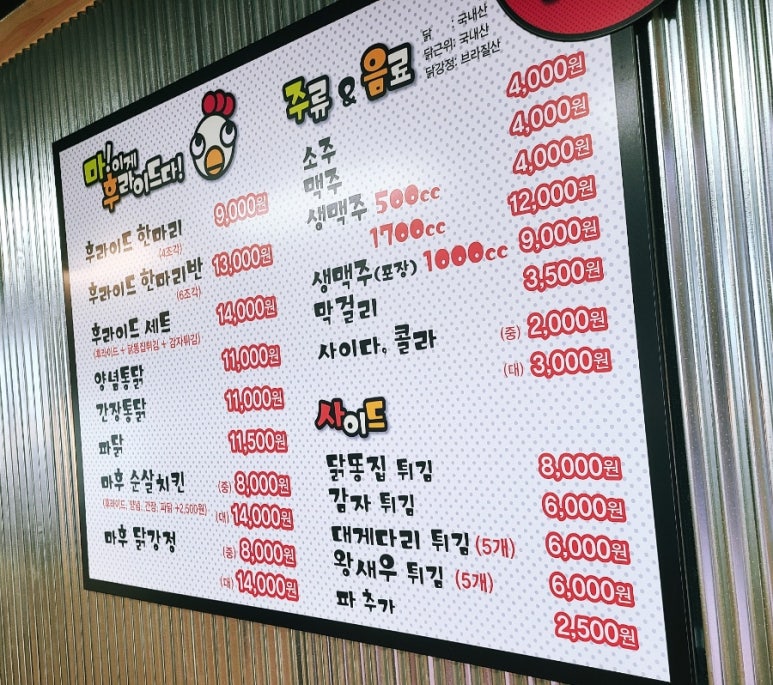 마!이게
후라이드다!
후라이드 한마리 9,000원
(4조각)
후라이드 한마리반 13,000원
(6조각)
후라이드 세트 14,000원
(후라이드 + 닭똥집튀김 + 감자튀김)
양념통닭 11,000원
간장통닭 11,000원
파닭 11,500원
마후 순살치킨 (중) 8,000원
(후라이드, 양념, 간장, 파닭 +2,500원)
(대) 14,000원
마후 닭강정 (중) 8,000원
(대) 14,000원
주류 & 음료
닭 : 국내산
닭근위: 국내산
닭강정: 브라질산
소주 4,000원
맥주 4,000원
생맥주 500cc 4,000원
1700cc 12,000원
생맥주(포장) 1000cc 9,000원
막걸리 3,500원
사이다. 콜라 (중) 2,000원
(대) 3,000원
사이드
닭똥집 튀김 8,000원
감자 튀김 6,000원
대게다리 튀김 (5개) 6,000원
왕새우 튀김 (5개) 6,000원
파 추가 2,500원